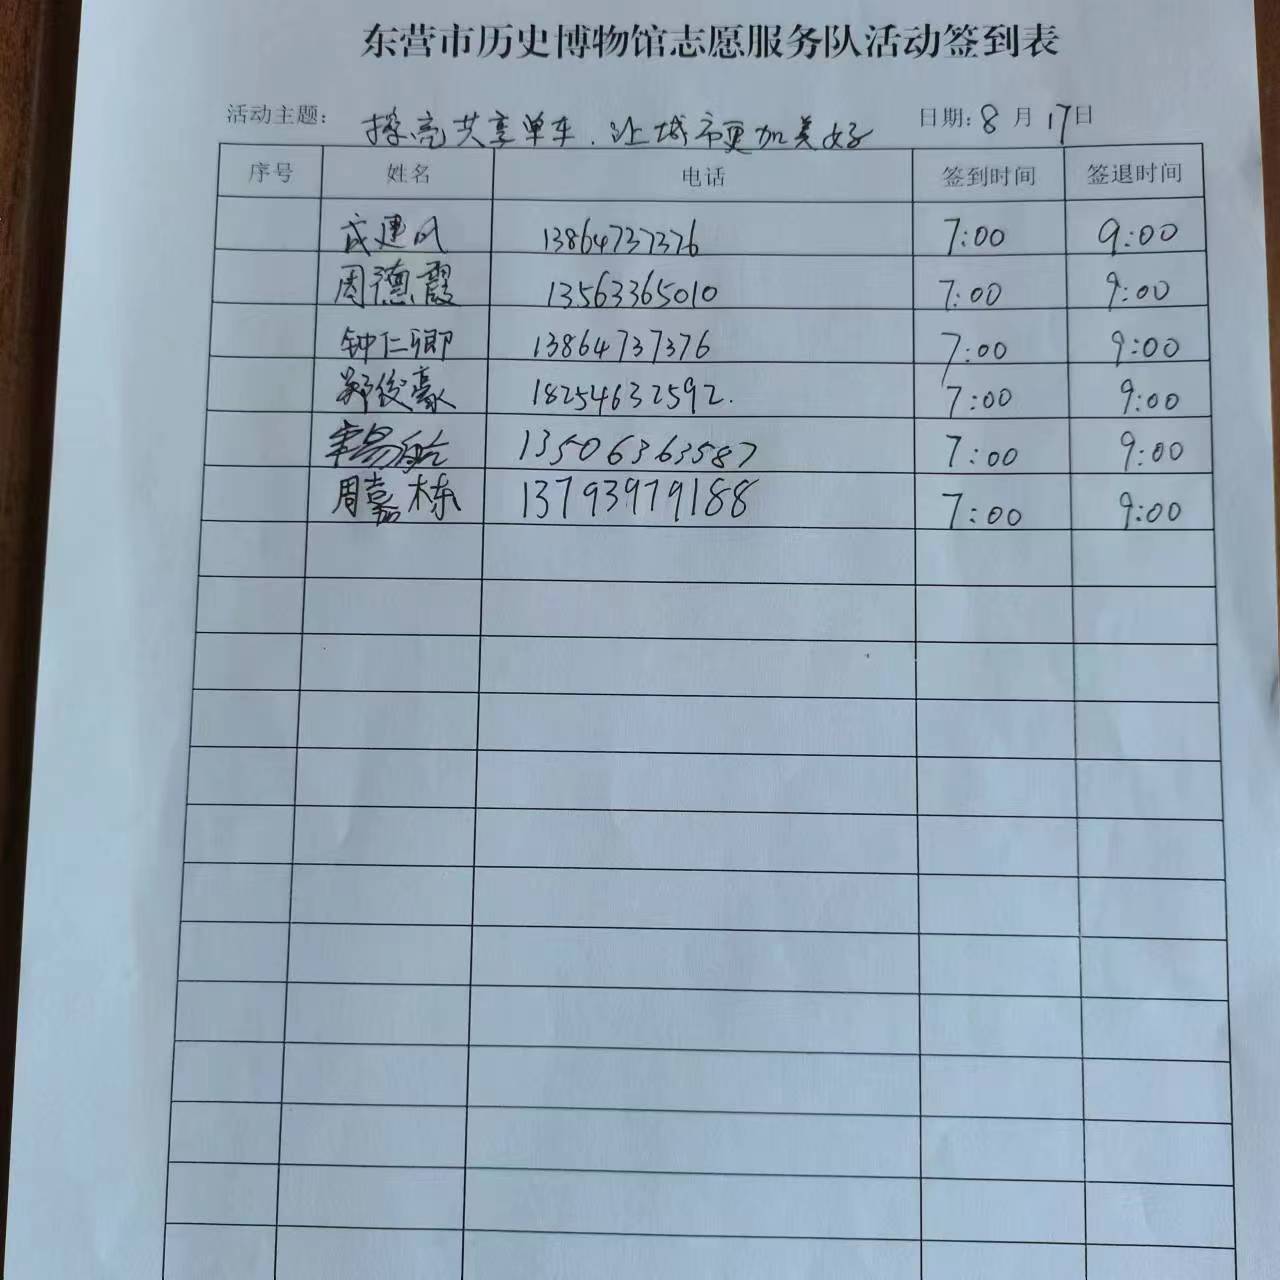 东营市历史博物馆志愿服务队活动签到表
活动主题: 擦亮共享单车.让城市更加美好 日期:8月17日
序号 姓名 电话 签到时间 签退时间
建风 13864737376 7:00 9:00
周德霞 13563365010 7:00 9:00
钟仁卿 13864737376 7:00 9:00
郑俊豪 18254632592. 7:00 9:00
13506363587 7:00 9:00
周嘉栋 13793979188 7:00 9:00